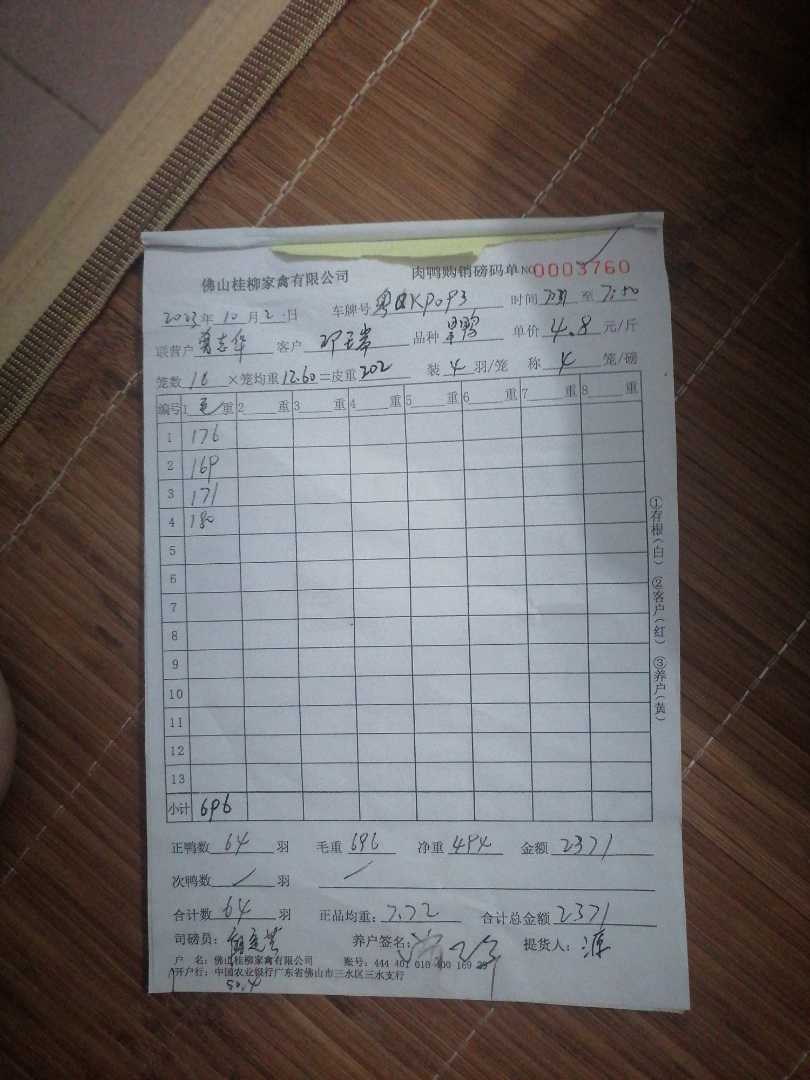 佛山桂柳家禽有限公司 肉鸭购销磅码单 NO 0003760
2023年10月2日 车牌号 粤 KP0P3 时间 至 7:50
联营户 曾志华 客户 邓 品种 单价 4.8 元/斤
笼数 16 ×笼均重 12.60 =皮重 202 装 4 羽/笼 称 4 笼/磅
编号 1 毛 重 2 重 3 重 4 重 5 重 6 重 7 重 8 重
1 176
2 169
3 171
4 180
5
6
7
8
9
10
11
12
13
小计 696
正鸭数 64 羽 毛重 696 净重 494 金额 2371
次鸭数 / 羽 /
合计数 64 羽 正品均重: 7.72 合计总金额 2371
司磅员: 养户签名: 提货人: 源
户 名: 佛山桂柳家禽有限公司 账号: 444 401 010 400 169
开户行: 中国农业银行广东省佛山市三水区三水支行
50.4
①存根(白) ②客户(红) ③养户(黄)